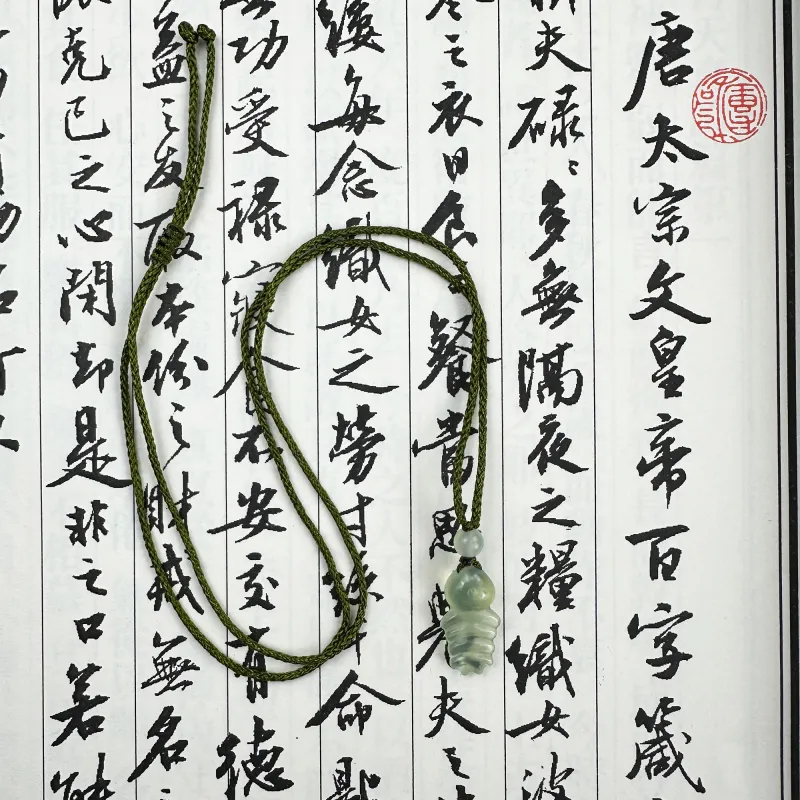 唐太宗文皇帝百字箴
耕夫碌〻多無隔夜之糧織女波
寒之衣日食餐當思農夫之
縷每念織女之勞寸絲千命匙
功受祿寢食不安交有德
義之友取本份之財戒無名之
克己之心閉却是非之口若能
功名可久